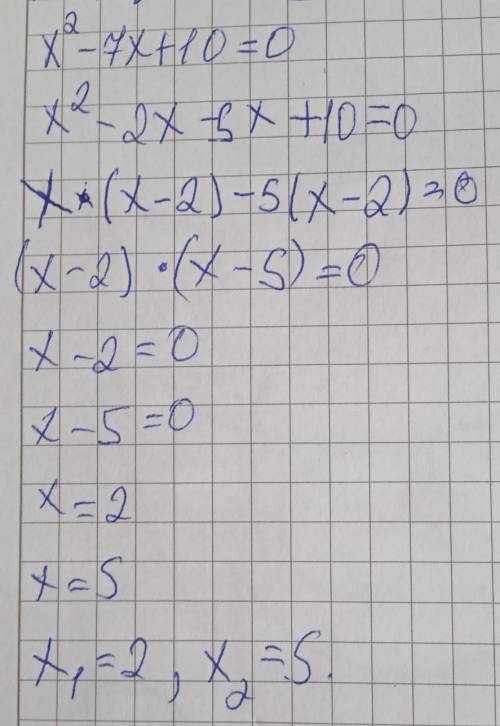 x² - 7x + 10 = 0
x² - 2x - 5x + 10 = 0
x · (x - 2) - 5(x - 2) = 0
(x - 2) · (x - 5) = 0
x - 2 = 0
x - 5 = 0
x = 2
x = 5
x₁ = 2, x₂ = 5.